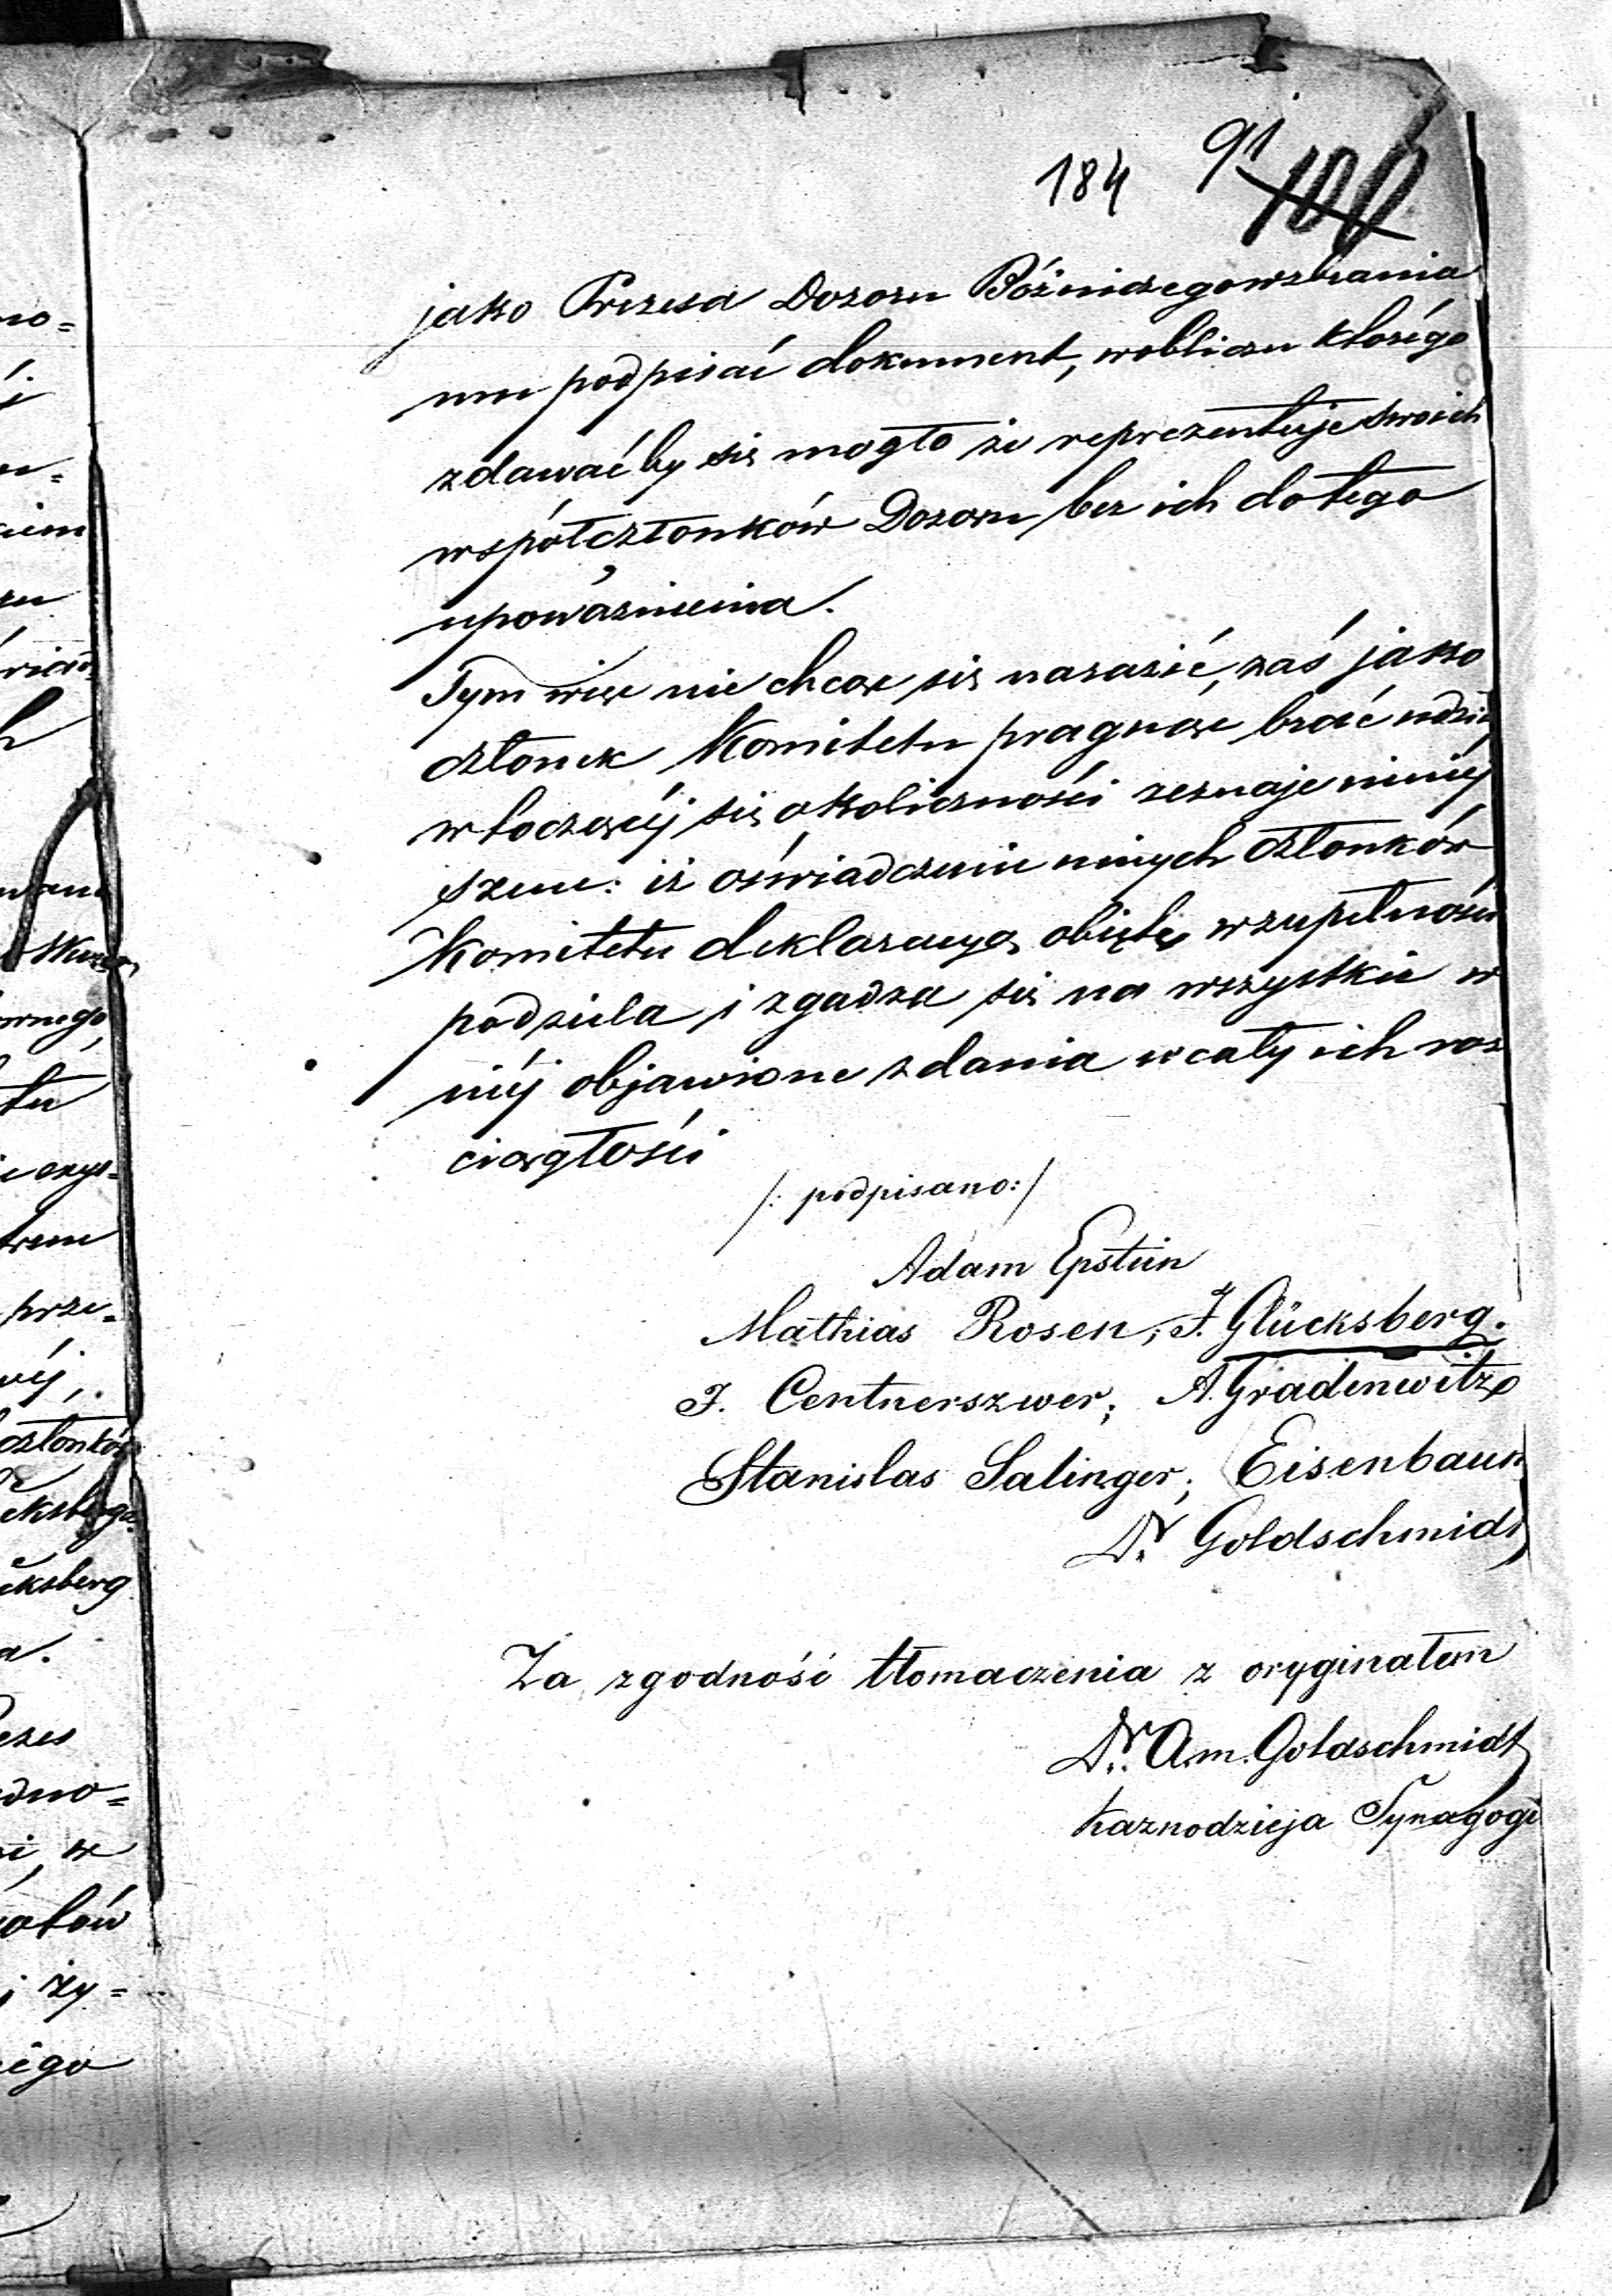 184 91 100
jako Prezesa Dozoru Bóżniczego wzbrania
mu podpisać dokument, w obliczu którego
zdawać by się mogło że reprezentuje swoich
współczłonków Dozoru bez ich do tego
upoważnienia.
Tym więc nie chcąc się narazić, zaś jako
członek Komitetu pragnąc brać udział
w toczącéj się okoliczności zeznaje niniéj
szem: iż oświadczenie innych członków
Komitetu deklaracyą objęte w zupełności
podziela i zgadza się na wszystkie w
niéj objawione zdania w całéj ich roz
ciągłości
/: podpisano:/
Adam Epstein
Mathias Rosen; J. Glücksberg.
J. Centnerszwer; A. Gradenwitz
Stanislas Salinger; Eisenbaum
Dr. Goldschmidt
Za zgodność tłomaczenia z oryginałem
Dr. Am. Goldschmidt
Kaznodzieja Synagogi
no=
kiem
tu
prze=
członków
cksberg
a.
dno=
ży=